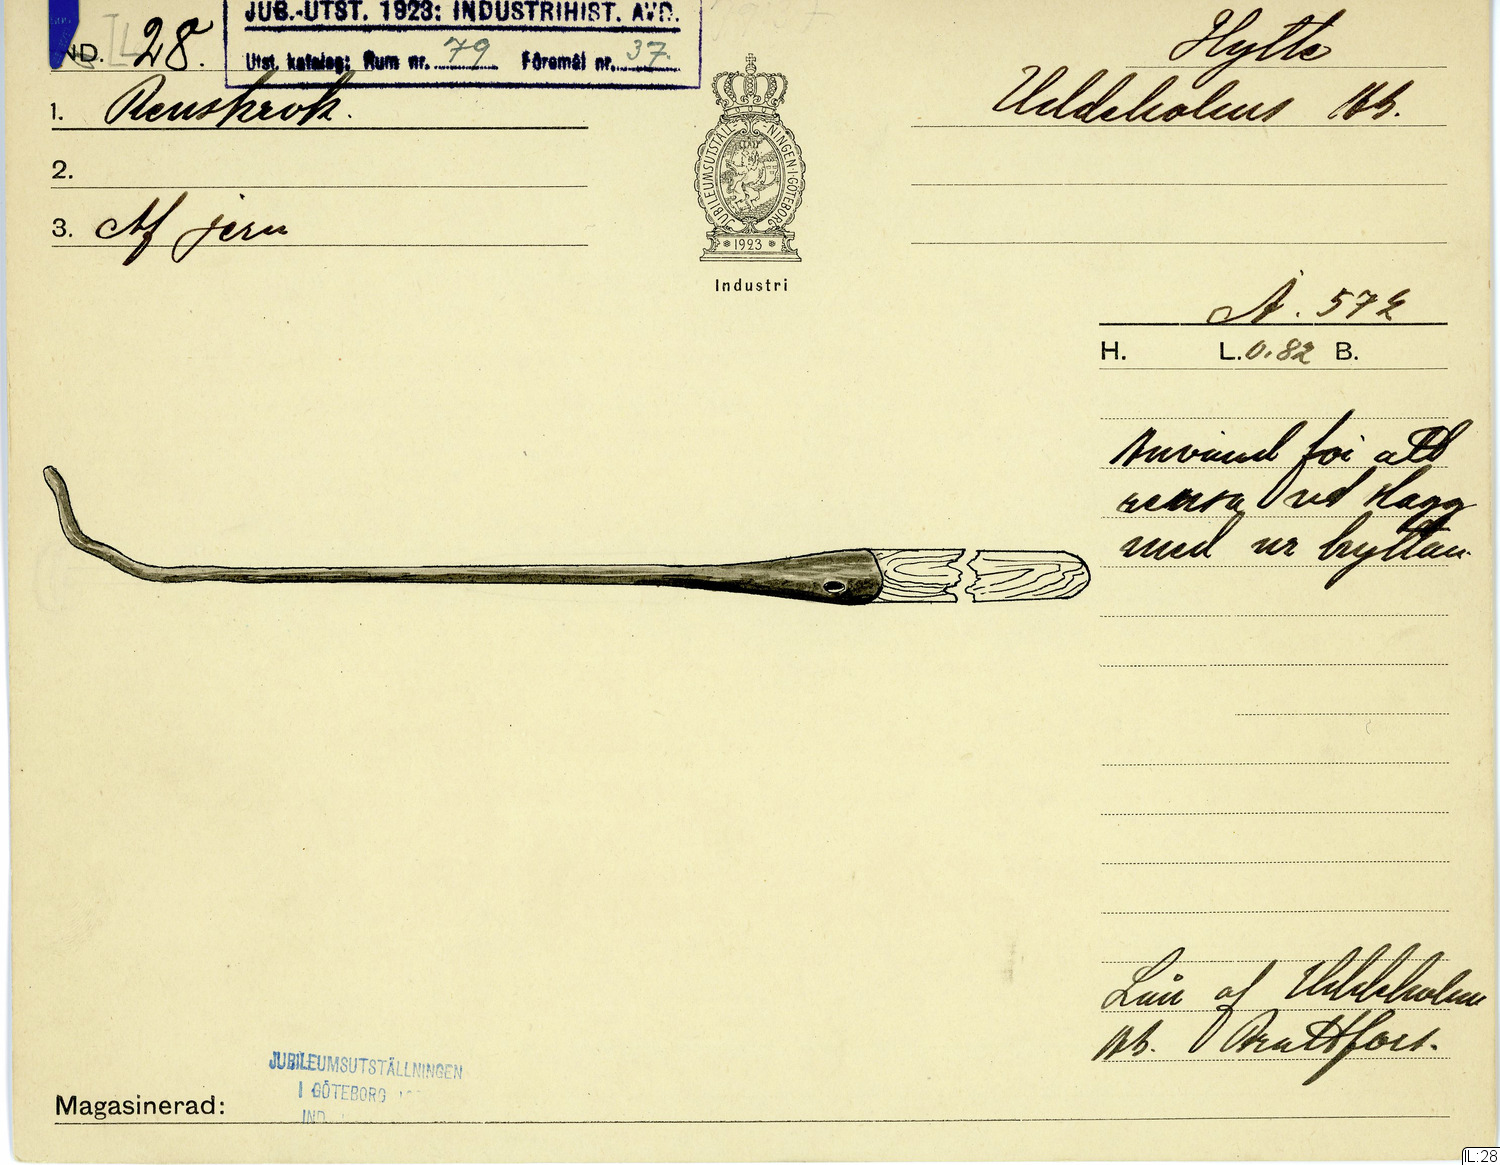 JUB.-UTST. 1923: INDUSTRIHIST. AVD.
Utst. katalog: Rum nr. 79 Föremål nr. 37
IND. 28.
1. Renskrok.
2.
3. Af jern
JUBILEUMSUTSTÄLLNINGEN I GÖTEBORG
1923
Industri
Hytte
Uddeholms Ab.
A. 572
H. L. 0.82 B.
Använd för att
rensa ut slagg
med ur hyttan.
Lån af Uddeholms
Ab. Brattfors.
JUBILEUMSUTSTÄLLNINGEN
I GÖTEBORG
IND.
Magasinerad:
IL:28